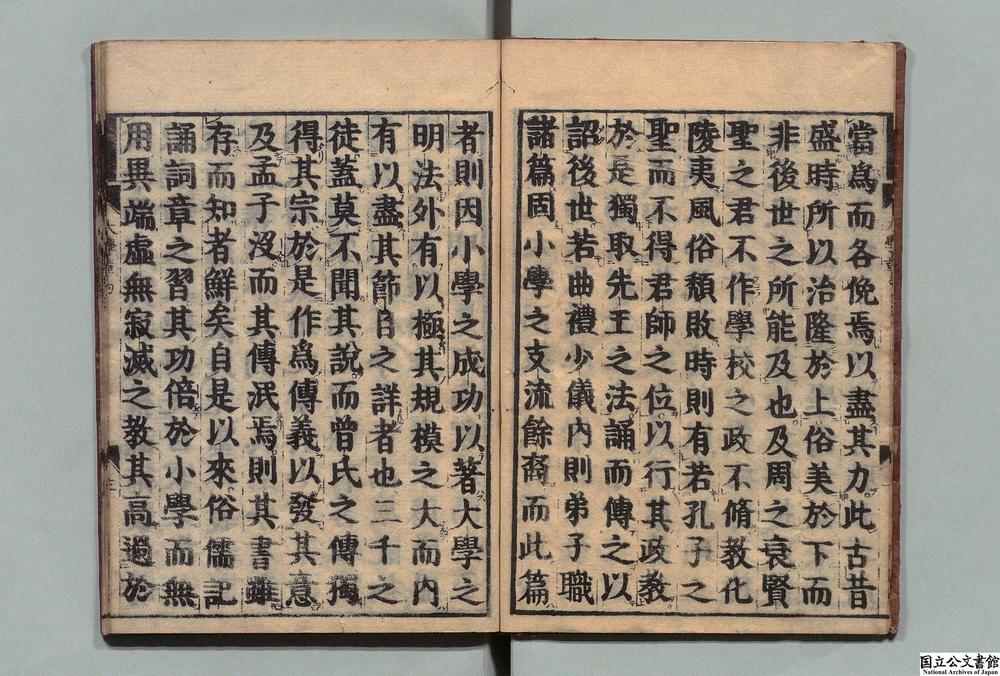 當爲而各俛焉以盡其力此古昔
盛時所以治隆於上俗美於下而
非後世之所能及也及周之衰賢
聖之君不作學校之政不脩敎化
陵夷風俗頹敗時則有若孔子之
聖而不得君師之位以行其政敎
於是獨取先王之法誦而傳之以
詔後世若曲禮少儀内則弟子職
諸篇固小學之支流餘裔而此篇
者則因小學之成功以著大學之
明法外有以極其規模之大而内
有以盡其節目之詳者也三千之
徒蓋莫不聞其說而曾氏之傳獨
得其宗於是作爲傳義以發其意
及孟子沒而其傳泯焉則其書雖
存而知者鮮矣自是以來俗儒記
誦詞章之習其功倍於小學而無
用異端虛無寂滅之敎其高過於
国立公文書館
National Archives of Japan